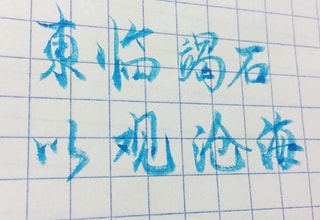 東临碣石
以观沧海